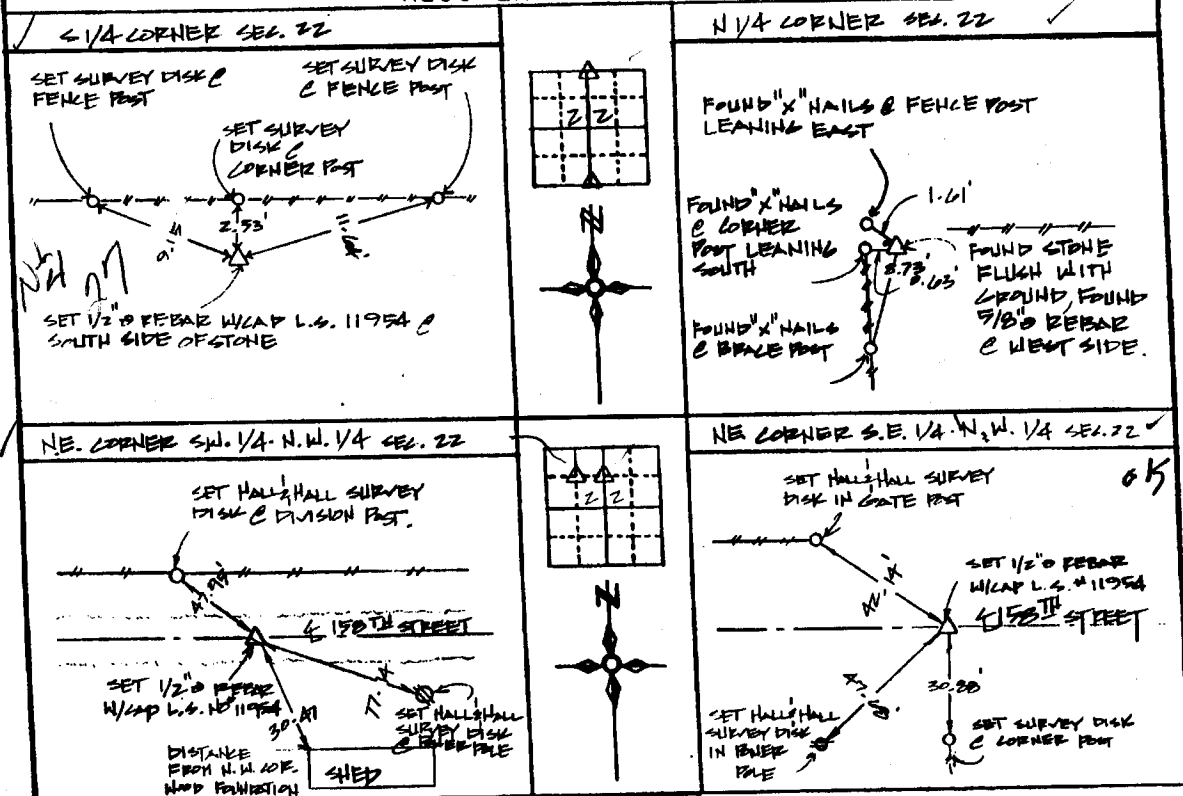 S 1/4 CORNER SEC. 22
SET SURVEY DISK @
FENCE POST
SET SURVEY DISK
@ FENCE POST
SET SURVEY
DISK @
CORNER POST
2.53'
SET 1/2"Ø REBAR W/CAP L.S. 11954 @
SOUTH SIDE OF STONE
22
N
N 1/4 CORNER SEC. 22
FOUND "X" NAILS @ FENCE POST
LEANING EAST
1.61'
FOUND "X" NAILS
@ CORNER
POST LEANING
SOUTH
8.73'
0.63'
FOUND STONE
FLUSH WITH
GROUND, FOUND
5/8"Ø REBAR
@ WEST SIDE.
FOUND "X" NAILS
@ BRACE POST
N.E. CORNER S.W. 1/4 - N.W. 1/4 SEC. 22
SET HALL & HALL SURVEY
DISK @ DIVISION POST.
43.99'
℄ 158TH STREET
SET 1/2"Ø REBAR
W/CAP L.S. NO 11954
SET HALL & HALL
SURVEY DISK
@ POWER POLE
DISTANCE
FROM N.W. COR.
WOOD FOUNDATION
SHED
22
N
NE CORNER S.E. 1/4 - N.W. 1/4 SEC. 22
OK
SET HALL & HALL SURVEY
DISK IN GATE POST
42.14'
SET 1/2"Ø REBAR
W/CAP L.S. # 11954
℄ 158TH STREET
30.88'
SET HALL & HALL
SURVEY DISK
IN POWER
POLE
SET SURVEY DISK
@ CORNER POST